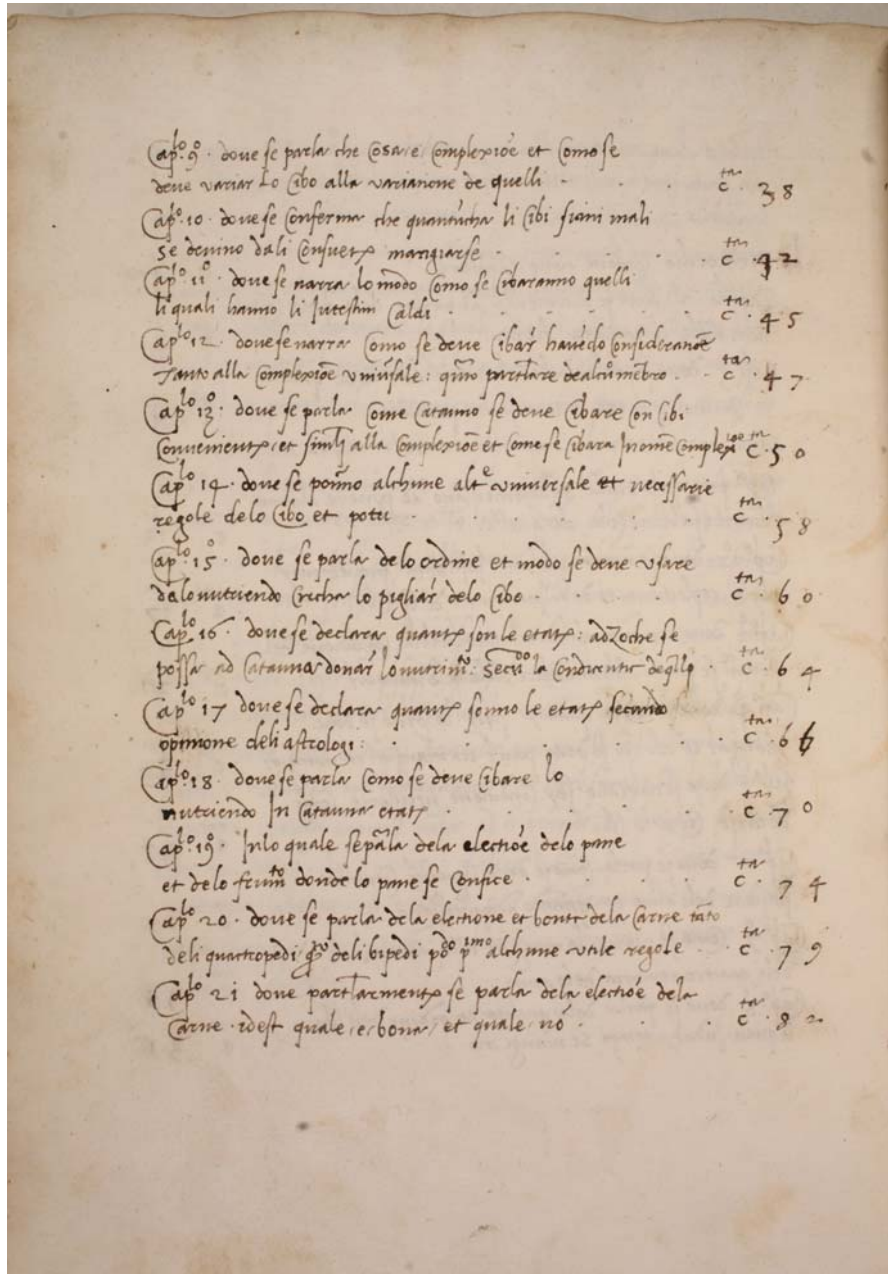 Cap.lo 9.o dove se parla che cosa e complexiõe et como se
deve variar lo cibo alla variatione de quelli . . . c.ta 38
Cap.lo 10. dove se conferma che quantũcha li cibi siãni mali
se devino dali consuete mangiarse . . . c.ta 42
Cap.lo 11.o dove se narra lo modo como se cibaranno quelli
li quali hanno li Intestini caldi . . . c.ta 45
Cap.lo 12. dove se narra como se deve cibar havẽdo consideratiõe
tanto alla complexiõe uniṽsale: qũto partĩlare de alcũ mẽbro . c.ta 47
Cap.lo 13.o dove se parla come catauno se deve cibare con cibi
convenient et simĩli alla complexiõe et come se cibara In om̃e complex.oe c.ta 50
Cap.lo 14. dove se ponno alchune alt.e universale et necessarie
regole delo cibo et potu . . . c.ta 58
Cap.lo 15.o dove se parla delo ordine et modo se deve usare
dalo nutriendo circha lo pigliar delo cibo . . . c.ta 60
Cap.lo 16. dove se declara quante son le etate: ad zoche se
possa ad catauna donar lo nutrim.to: secũdo la c.ta 64
Cap.lo 17 dove se declara quante sonno le etate secundo
opinione deli astrologi: . . . c.ta 66
Cap.lo 18. dove se parla como se deve cibare lo
nutriendo In catauna etate . . . c.ta 70
Cap.lo 19.o In lo quale se pãla dela electiõe delo pane
et delo frum.to donde lo pane se confice . . . c.ta 74
Cap.lo 20. dove se parla dela electione et bonta dela carne tãto
deli quatropedi q.to deli bipedi p.do p.imo alchune utile regole . . c.ta 79
Cap.lo 21 dove partĩlarmente se parla dela electiõe dela
carne . idest quale e bona et quale nõ . . . c.ta 82